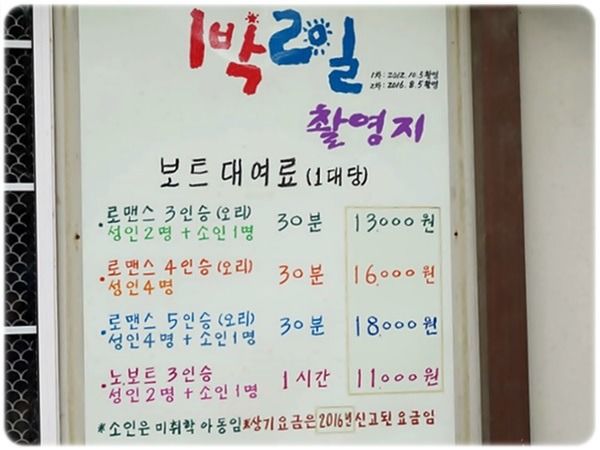 1박2일
1차:2012.10.5촬영
2차:2016.8.5촬영
촬영지
보트대여료(1대당)
로맨스 3인승(오리) 30분 13,000원
성인2명+소인1명
로맨스 4인승(오리) 30분 16,000원
성인4명
로맨스 5인승(오리) 30분 18,000원
성인4명+소인1명
노.보트 3인승 1시간 11,000원
성인2명+소인1명
*소인은 미취학 아동임 *상기요금은 2016년 신고된 요금임